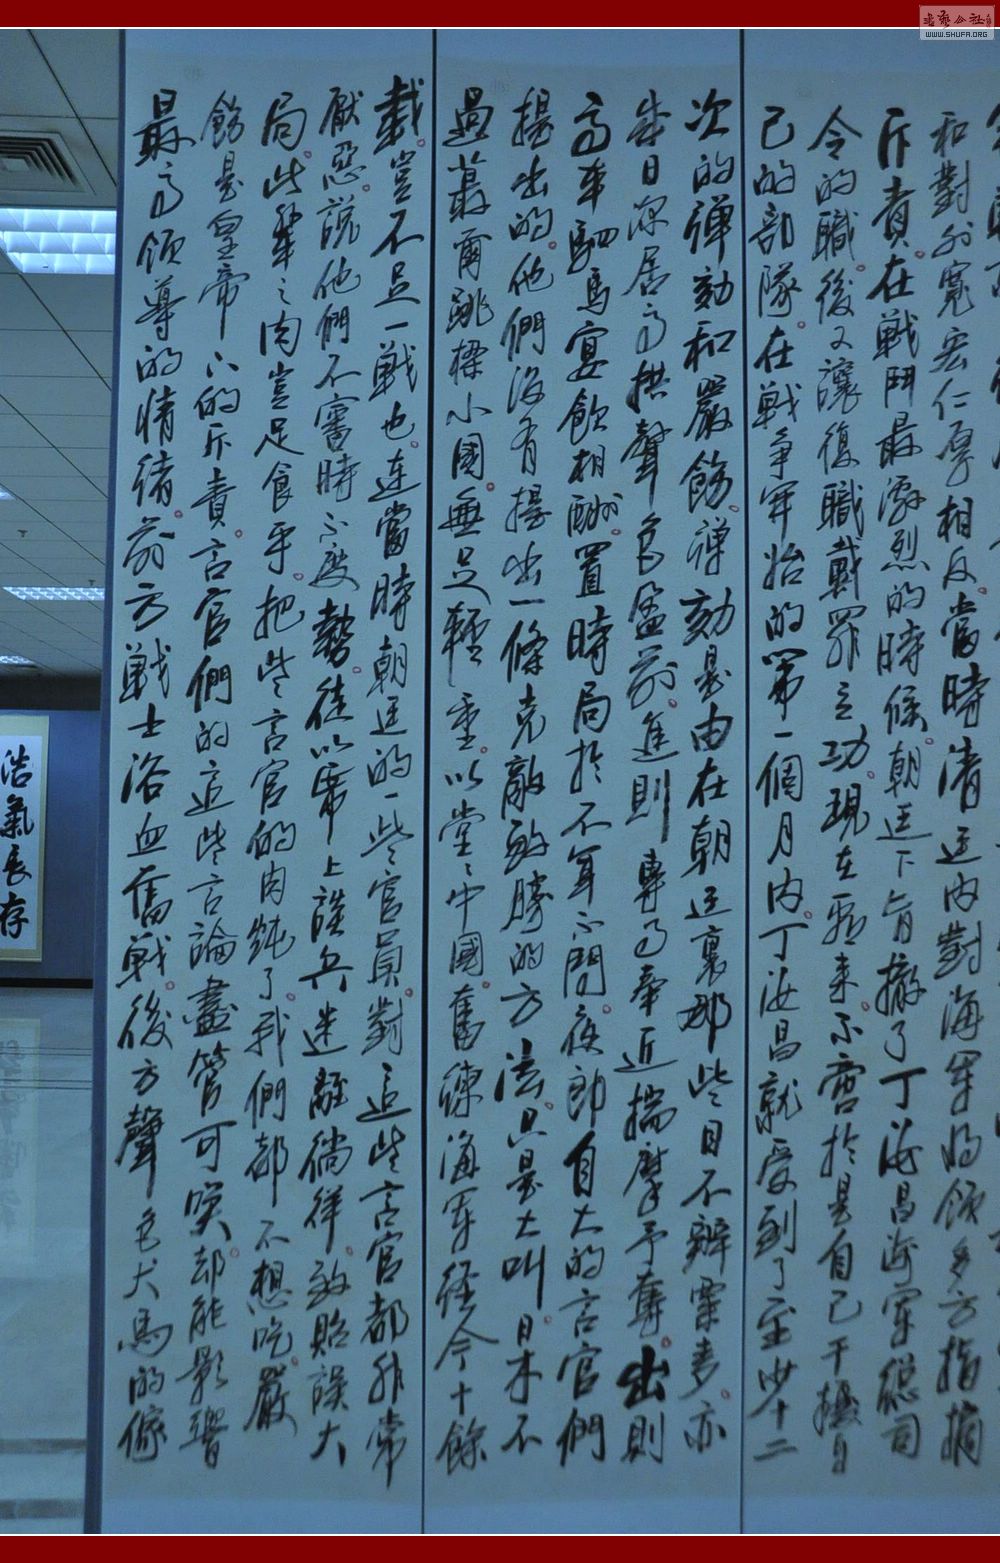 書藝公社
WWW.SHUFA.ORG
和對外寬宏仁厚相反當時清廷内對海軍将領多方指摘
斥責在戰鬥最激烈的時候朝廷下旨撤了丁汝昌海軍總司
令的職後又讓復職戴罪立功現在看来不啻於是自己干擾自
己的部隊在戰争開始的第一個月内丁汝昌就受到了至少十二
次的彈劾和嚴飭彈劾是由在朝廷裏那些目不辨粟麦亦
每日深居高拱聲色盈前進則專事奉迎揣摩予奪出則
高車駟馬宴飲相酬置時局於不耳不聞夜郎自大的言官們
提出的他們没有提出一條克敵致勝的方法只是大叫日本不
過蕞爾跳樑小國無足輕重以堂堂中國舊練海軍經今十餘
載豈不足一戰也連當時朝廷的一些官員對這些言官都非常
厭惡說他們不審時不度勢徒以虛上談兵迷離徜徉致贻誤大
局此輩之肉豈足食乎把這些言官的肉炖了我們都不想吃嚴
飭是皇帝下的斥責言官們的這些言論盡管可笑却能影響
最高領導的情緒前方戰士浴血奮戰後方聲色犬馬的傢
浩氣長存